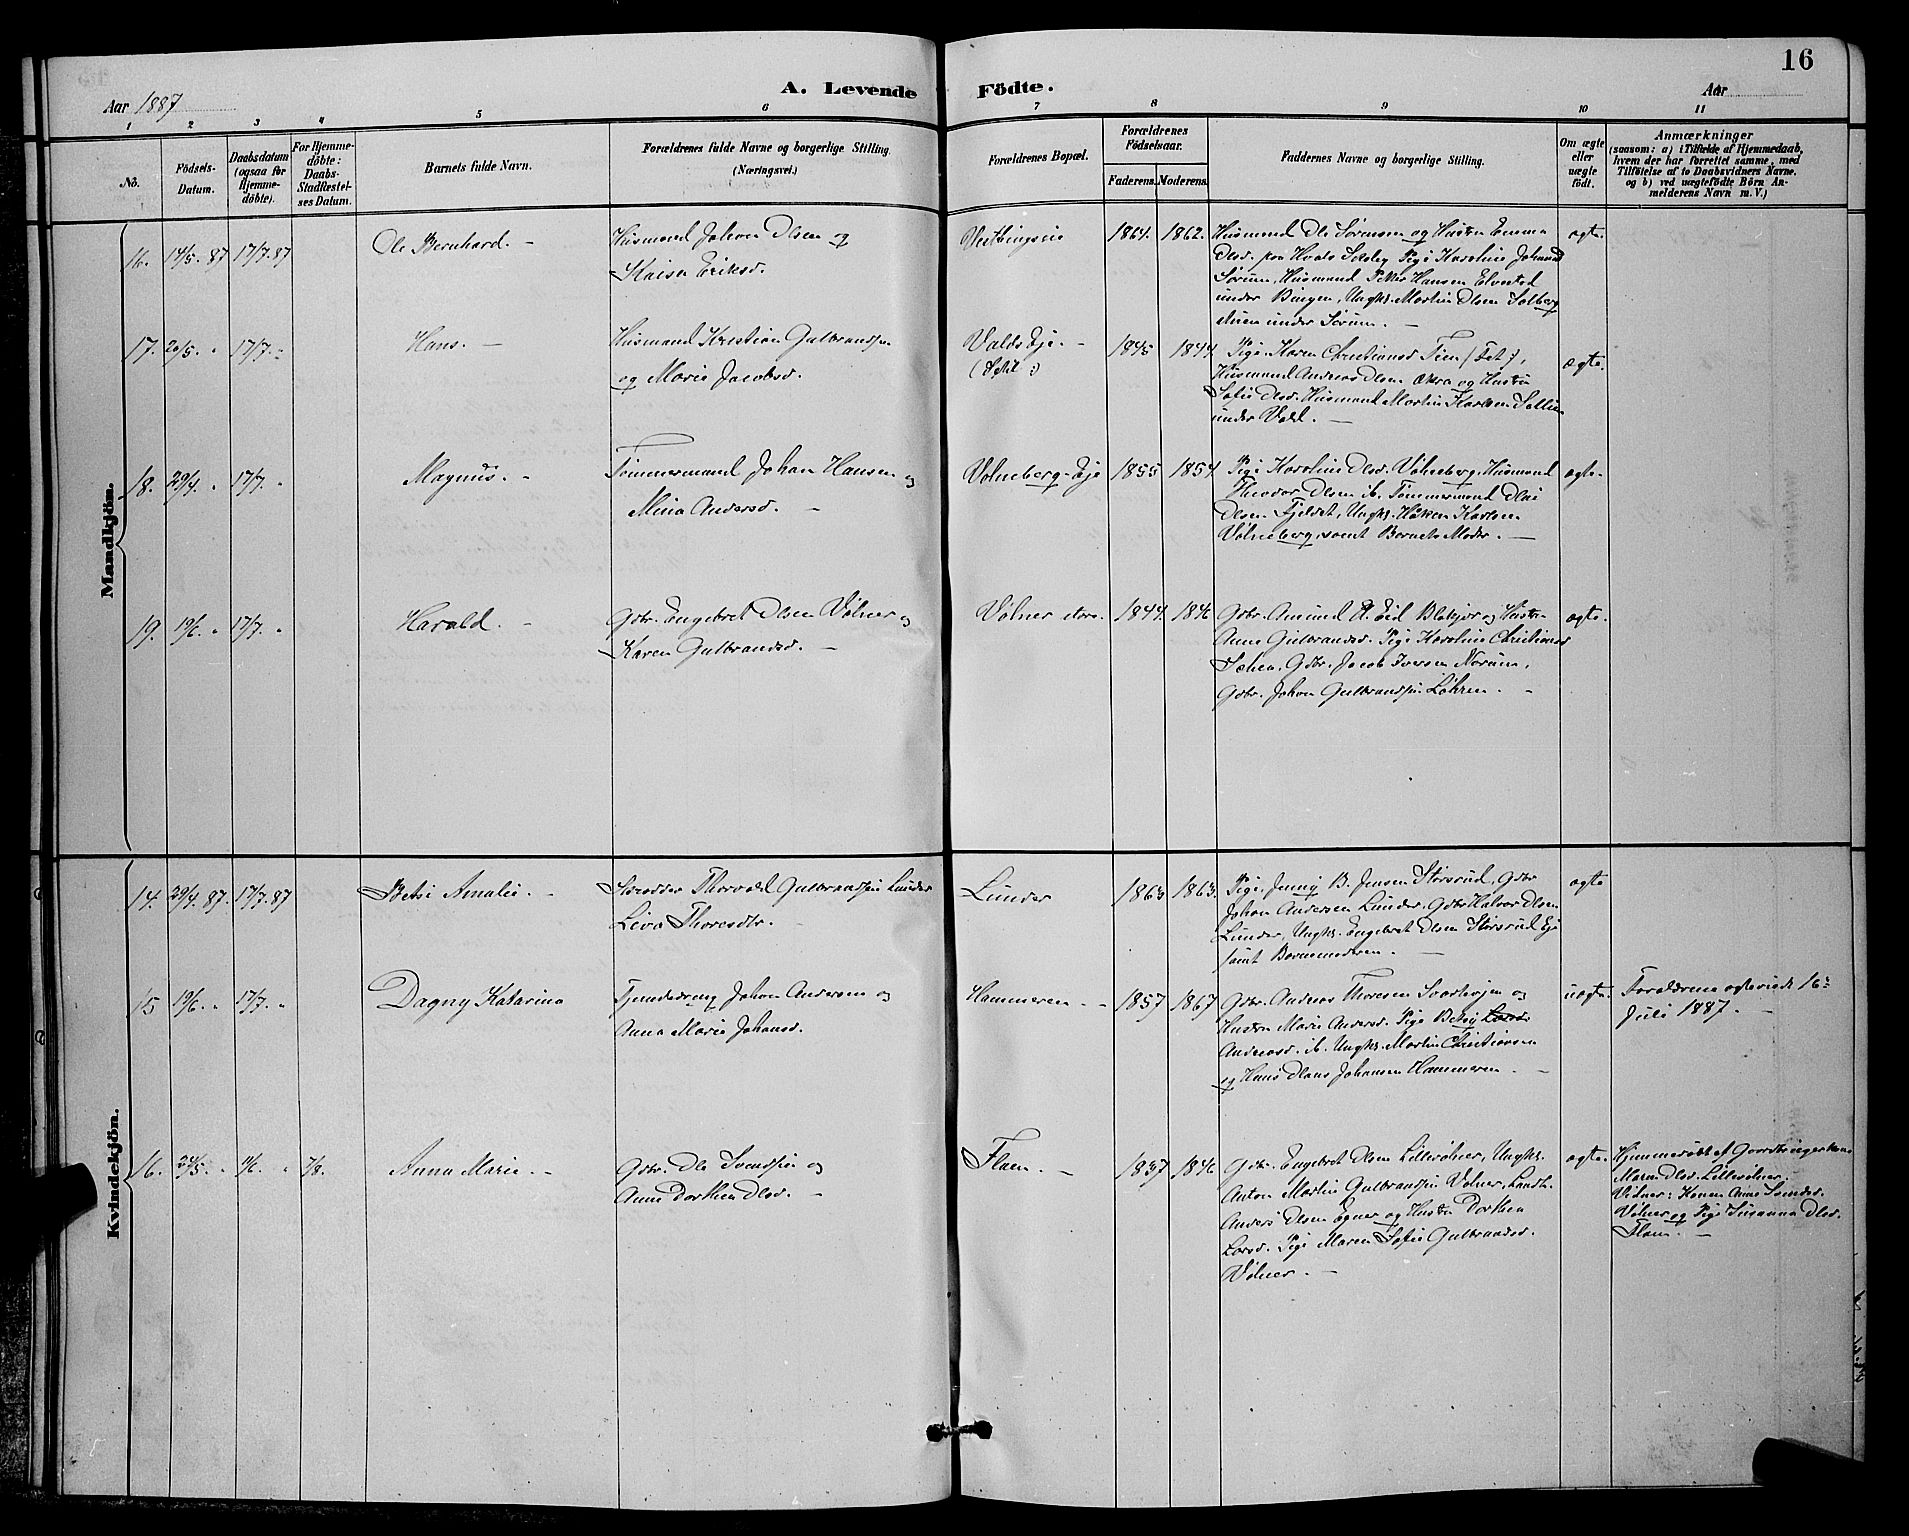 16
Aar 1887
A. Levende Födte.
Aar
1 2 3 4 5 6 7 8 9 10 11
No.
Födsels-Datum.
Daabsdatum (ogsaa for Hjemmedöbte).
For Hjemmedöbte: Daabs-Stadfæstelses Datum.
Barnets fulde Navn.
Forældrenes fulde Navne og borgerlige Stilling. (Næringsvei.)
Forældrenes Bopæl.
Forældrenes Födselsaar.
Faderens. Moderens.
Faddernes Navne og borgerlige Stilling.
Om ægte eller uægte födt.
Anmærkninger
(saasom: a) i Tilfælde af Hjemmedaab, hvem der har forrettet samme, med Tilföielse af to Daabsvidners Navne, og b) ved uægtefödte Börn Anmelderens Navn m. V.)
Mandkjön.
16. 14/5. 87 17/7. 87
Ole Bernhard. —
Husmand Johan Olsen og
Kaisa Eriksd.
1864. 1862.
Husmand Ole Sørensen og Hustru Emma
Olsd. Pige Karoline Johansd
Sørum, Husmand Petter Hansen Elvestad
under Bingen, Ungk. Martin Olsen Solberg
under Sørum. —
ægte.
17. 20/5. " 17/7. "
Hans. —
Husmand Kristian Gulbrandsen
og Marie Jacobsd.
Valds Eje. —
1845 1844.
Pige Karen Christiansd Tien (Fet),
Husmand Andreas Olsen Økra og Hustru
Sofie Olsd. Husmand Martin Karlsen
under Vald. —
ægte.
18. 29/4. " 17/7. "
Magnus. —
Tømmermand Johan Hansen og
Mina Andersd. —
Volneberg-Eje
1855 1854.
Pige Karoline Olsd. Vølneberg, Husmand
Theodor Olsen ib. Tømmermand
Olsen Fjeldet, Ungk. Håken Karlsen
Vølneberg, samt Barnets Moder. —
ægte.
19. 19/6. " 17/7. "
Harald. —
Gdbr. Engebret Olsen Vølner og
Karen Gulbrandsd. —
Vølner store.
1844. 1846
Gdbr. Amund A. Eid Blakjer og Hustru
Anne Gulbrandsd. Pige Karoline Christiansd
Gdbr. Jacob Iversen Norum,
Gdbr. Johan Gulbrandsen Løhren. —
ægte.
Kvindekjön.
14. 29/4. 87. 17/7. 87
Betsi Amalie. —
Skrædder Thorvald Gulbrandsen Lunder
Liva Thoresdtr. —
Lunder
1863 1863.
Pige Jenny B. Jensen Storsrud, Gdbr
Johan Andersen Lunder, Gdbr Halvor Olsen
Lunder, Ungk. Engebret Olsen Storsrud Eje
samt Barnemoderen. —
ægte
15 19/6. " 17/7. "
Dagny Katarina
Tjenstedreng Johan Andersen og
Anna Marie Johansd.
Hammeren. —
1857 1867
Gdbr. Andreas Thoresen og
Hustru Marie Andersd. Pige Betsy
Andreasd. ib. Ungk. Martin Christiansen
og Hans Olaus Johansen Hammeren. —
uægte.
Forældrene ægteviede 16de
Juli 1887. —
16. 24/5. " 11/6. " 7/8.
Anna Marie. —
Gdbr. Ole Svendsen og
Anne Dorthea Olsd. —
Flaen. —
1837 1846.
Gdbr. Engebret Olsen Lillevølner, Ungk.
Anton Martin Gulbrandsen Vølner, Landh.
Anders Olsen Egner og Hustru Dorthea
Larsd. Pige Maren Sofie Gulbrandsd.
Vølner. —
ægte.
Hjemmedøbt af Gaardbrugerkone
Maren Olsd. Lillevølner.
Vidner: Konen Anne Svendsd.
Vølner og Pige Susanna Olsd.
Flaen. —